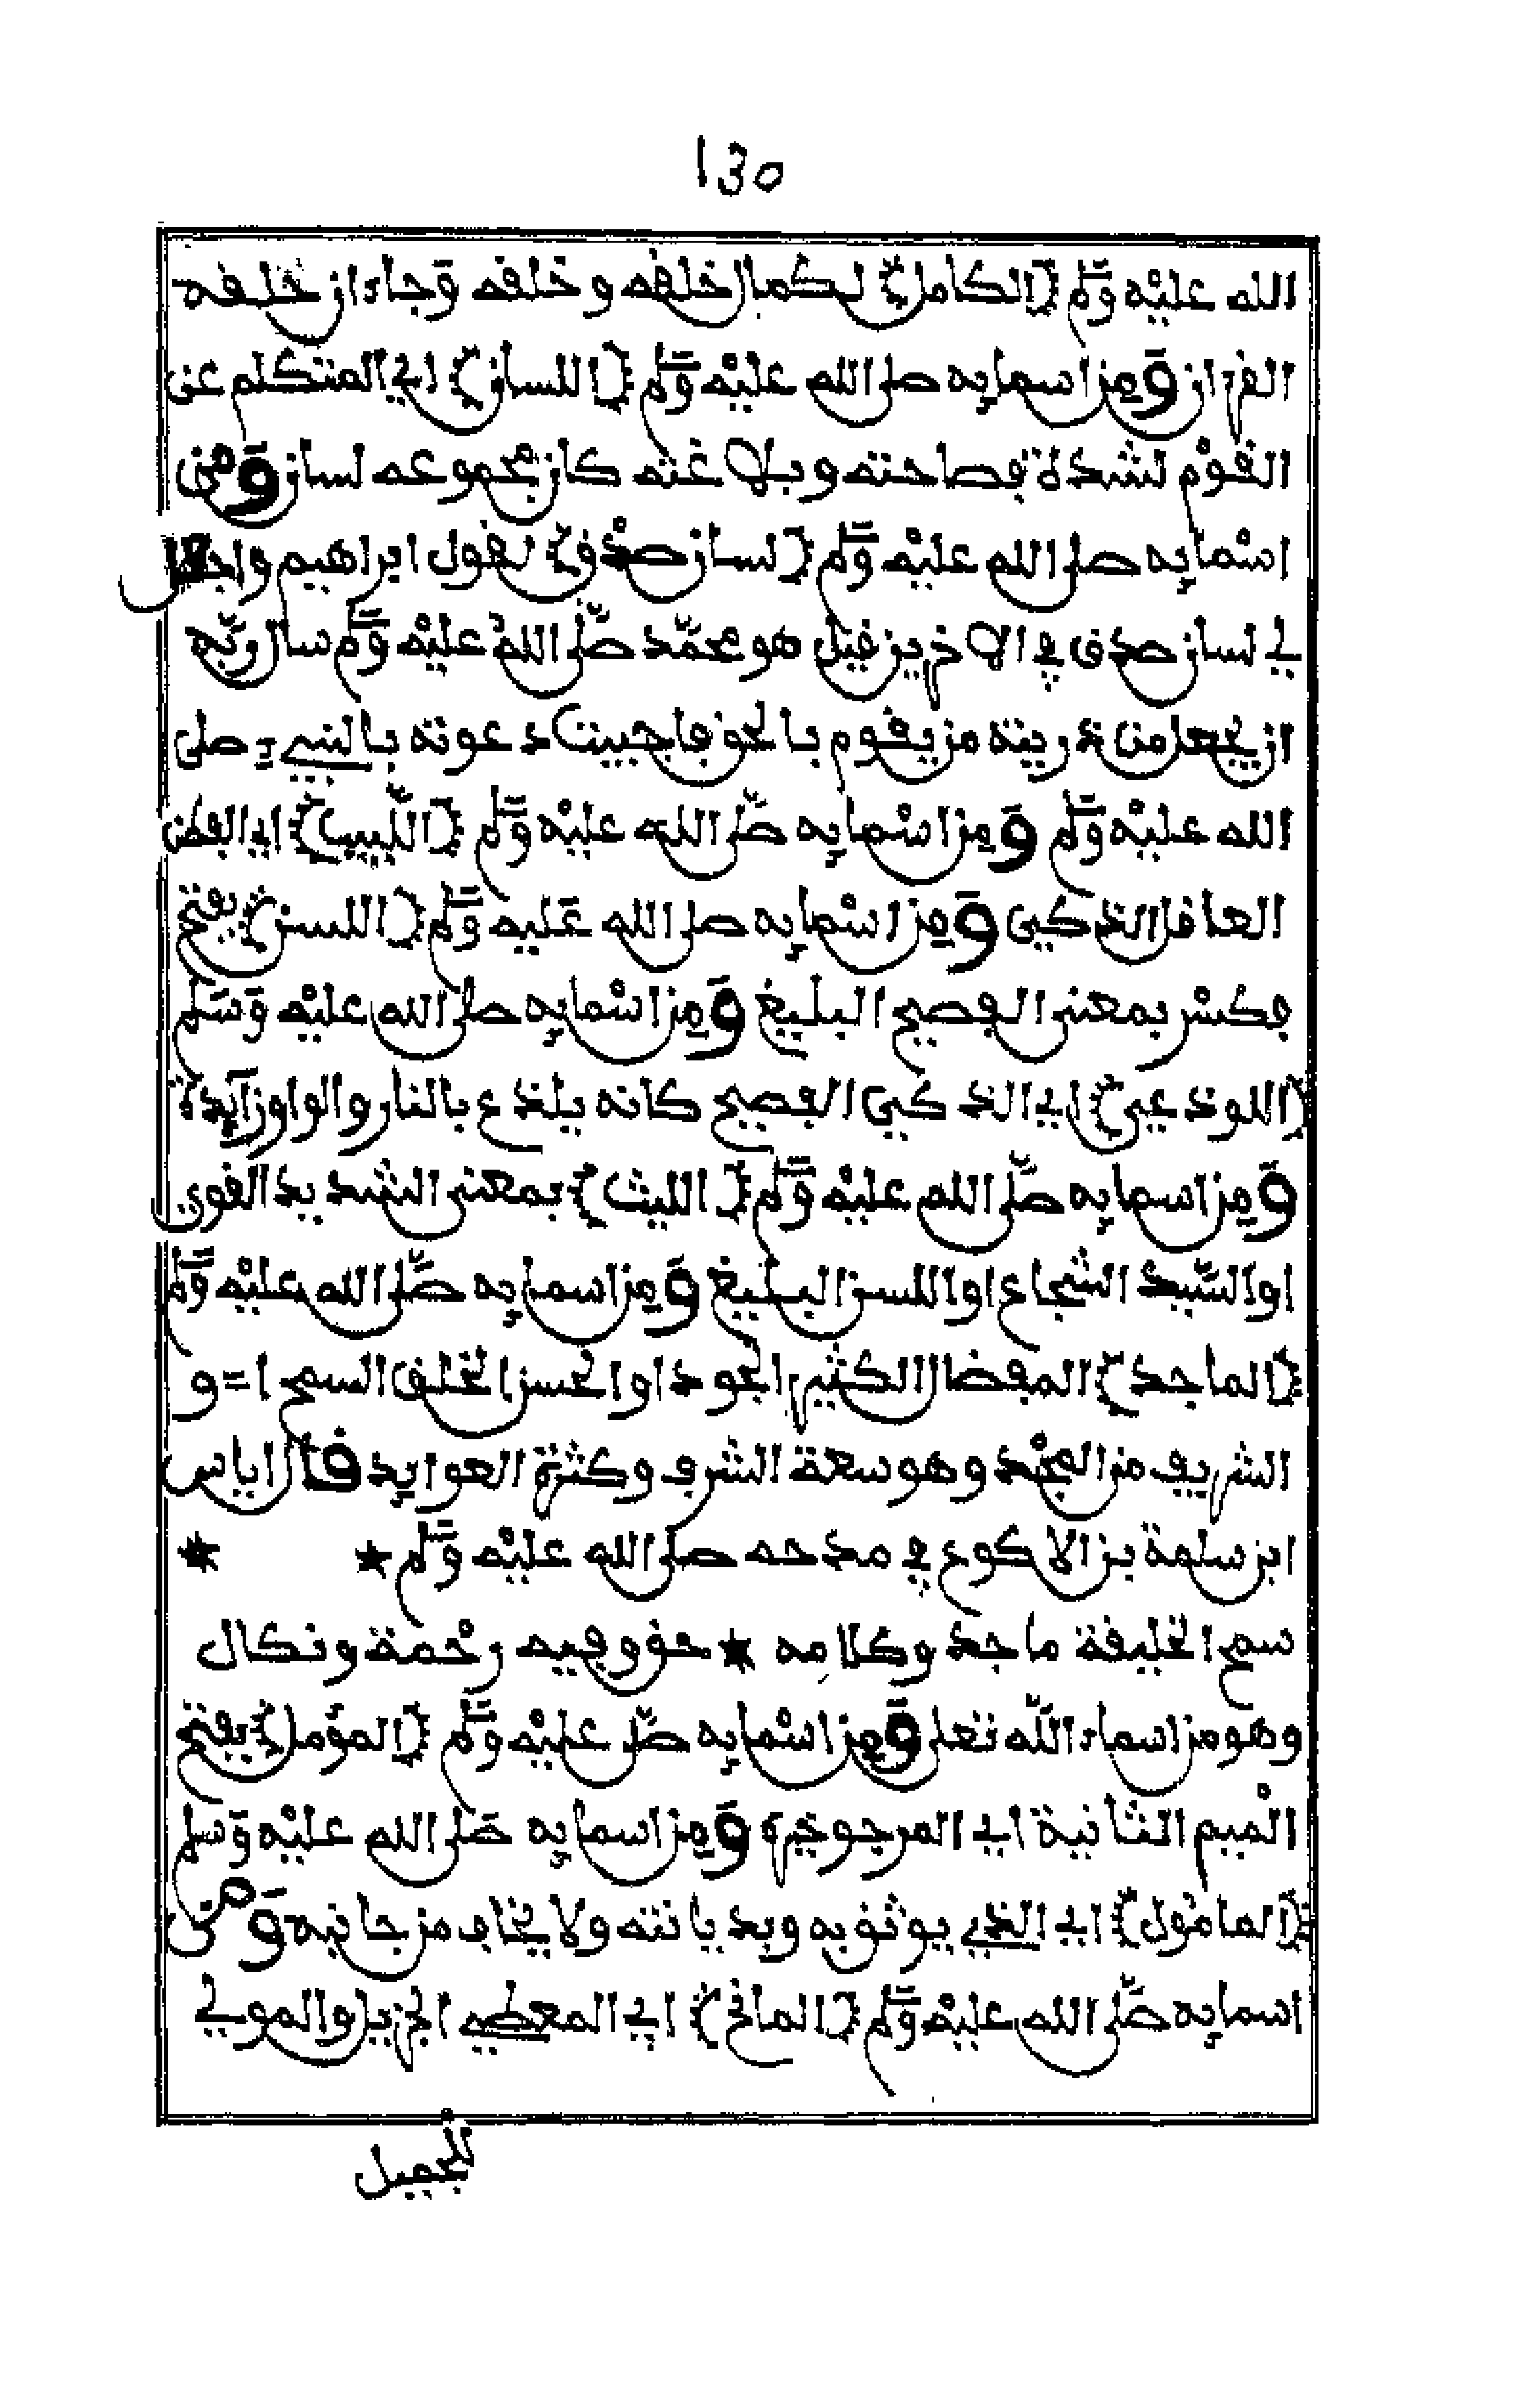 130
الله عليه وسلم (الكامل) لكمال خلقه وخلقه وجاء ان خلقه
القرءان ومن اسمايه صلى الله عليه وسلم (اللسان) اي المتكلم عن
القوم لشدة فصاحته وبلاغته كان مجموعه لسان ومن
اسمايه صلى الله عليه وسلم (لسان صدق) لقول ابراهيم واجعل
لي لسان صدق في الاخرين فيل هو محمد صلى الله عليه وسلم سال ربه
ان يجعل من ذريته من يقوم بالحق فاجيبت دعوته بالنبيء صلى
الله عليه وسلم ومن اسمايه صلى الله عليه وسلم (اللبيب) اي الفطن
العاقل الذكي ومن اسمايه صلى الله عليه وسلم (اللسن) بفتح
فكسر بمعنى الفصيح البليغ ومن اسمايه صلى الله عليه وسلم
(اللوذعي) اي الذكي الفصيح كانه يلذع بالنار والواو زايدة
ومن اسمايه صلى الله عليه وسلم (الليث) بمعنى الشديد القوي
او السيد الشجاع او اللسن البليغ ومن اسمايه صلى الله عليه وسلم
(الماجد) المفضال الكثير الجود او الحسن الخلق السمح ا = و
الشريف من المجد وهو سعة الشرف وكثرة العوايد قال اياس
ابن سلمة بن الاكوع في مدحه صلى الله عليه وسلم ★ ★
سمح الخليقة ماجد وكلامه ★ حق وفيه رحمة ونكال
وهو من اسماء الله تعلى ومن اسمايه صلى عليه وسلم (المؤمل) بفتح
الميم الثانية اي المرجو خيره ومن اسمايه صلى الله عليه وسلم
(المامول) اي الذي يوثق به وبديانته ولا يخاف من جانبه ومن
اسمايه صلى الله عليه وسلم (المانح) اي المعطي الجزيل والمولي
للجميل